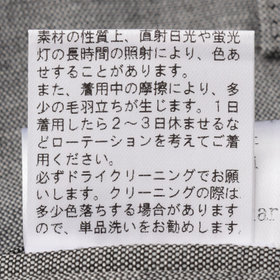 素材の性質上、直射日光や蛍光
灯の長時間の照射により、色あ
せすることがあります。
また、着用中の摩擦により、多
少の毛羽立ちが生じます。１日
着用したら２～３日休ませるな
どローテーションを考えてご着
用ください。
必ずドライクリーニングでお願
いします。クリーニングの際は
多少色落ちする場合があります
ので、単品洗いをお勧めします。
ar